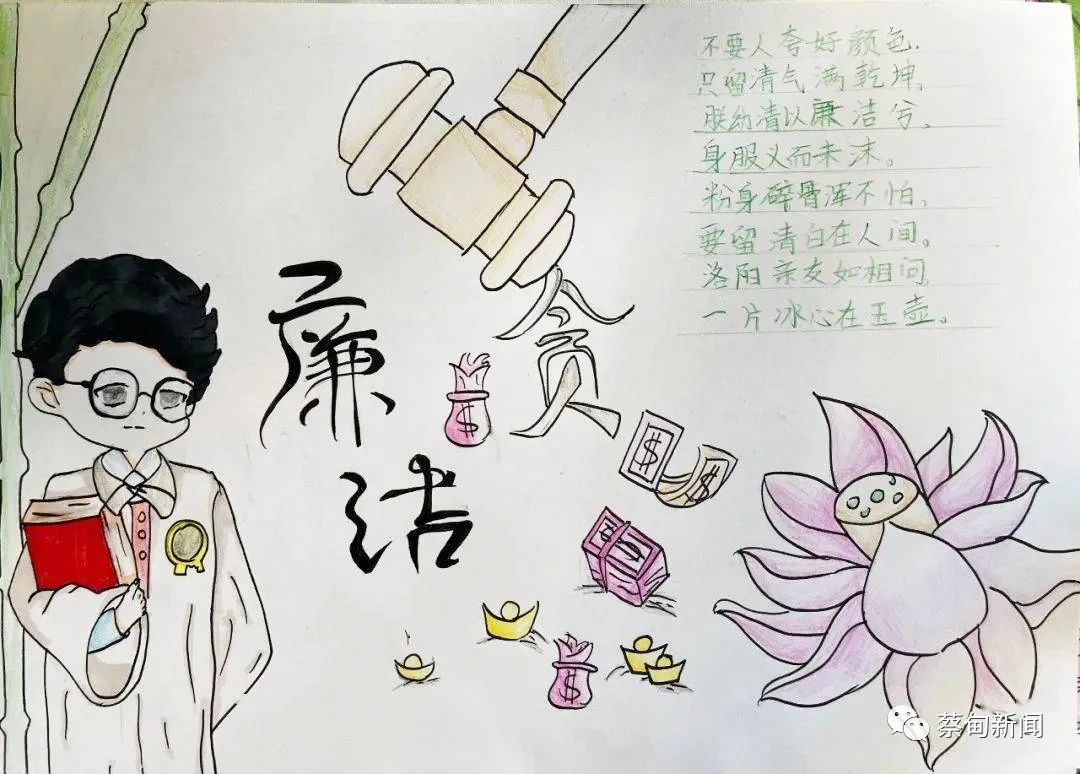 不要人夸好颜色,
只留清气满乾坤。
朕幼清以廉洁兮、
身服义而未沫。
粉身碎骨浑不怕,
要留清白在人间。
洛阳亲友如相问,
一片冰心在玉壶。
廉
洁
贪
$
$
$
$
蔡甸新闻